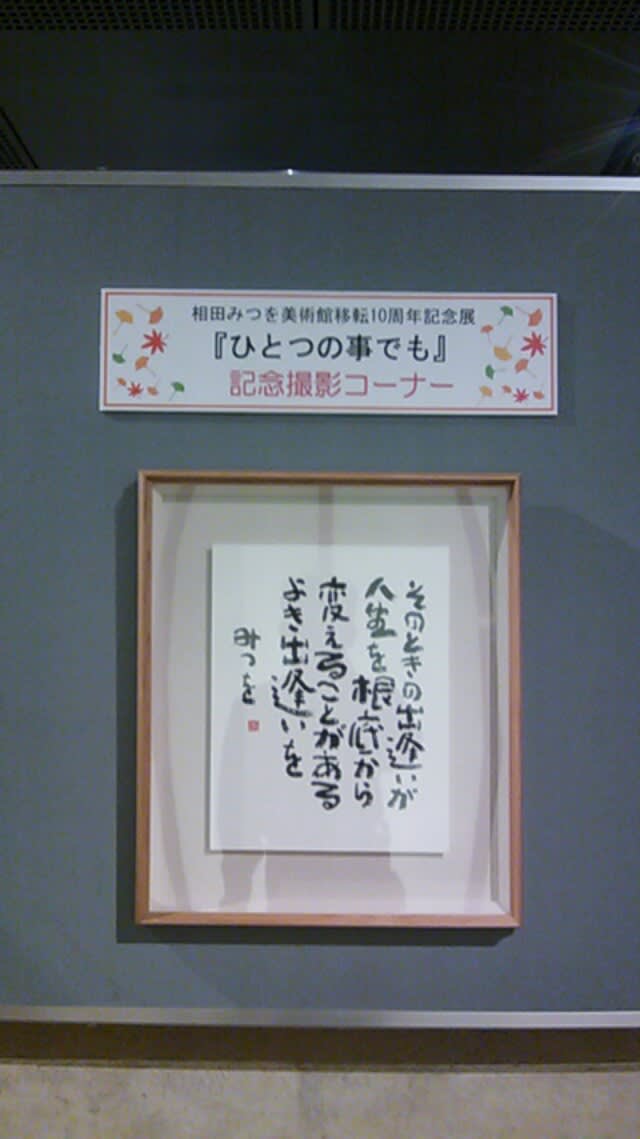 相田みつを美術館移転10周年記念展
『ひとつの事でも』
記念撮影コーナー
そのときの出逢いが
人生を根底から
変えることがある
よき出逢いを
みつを